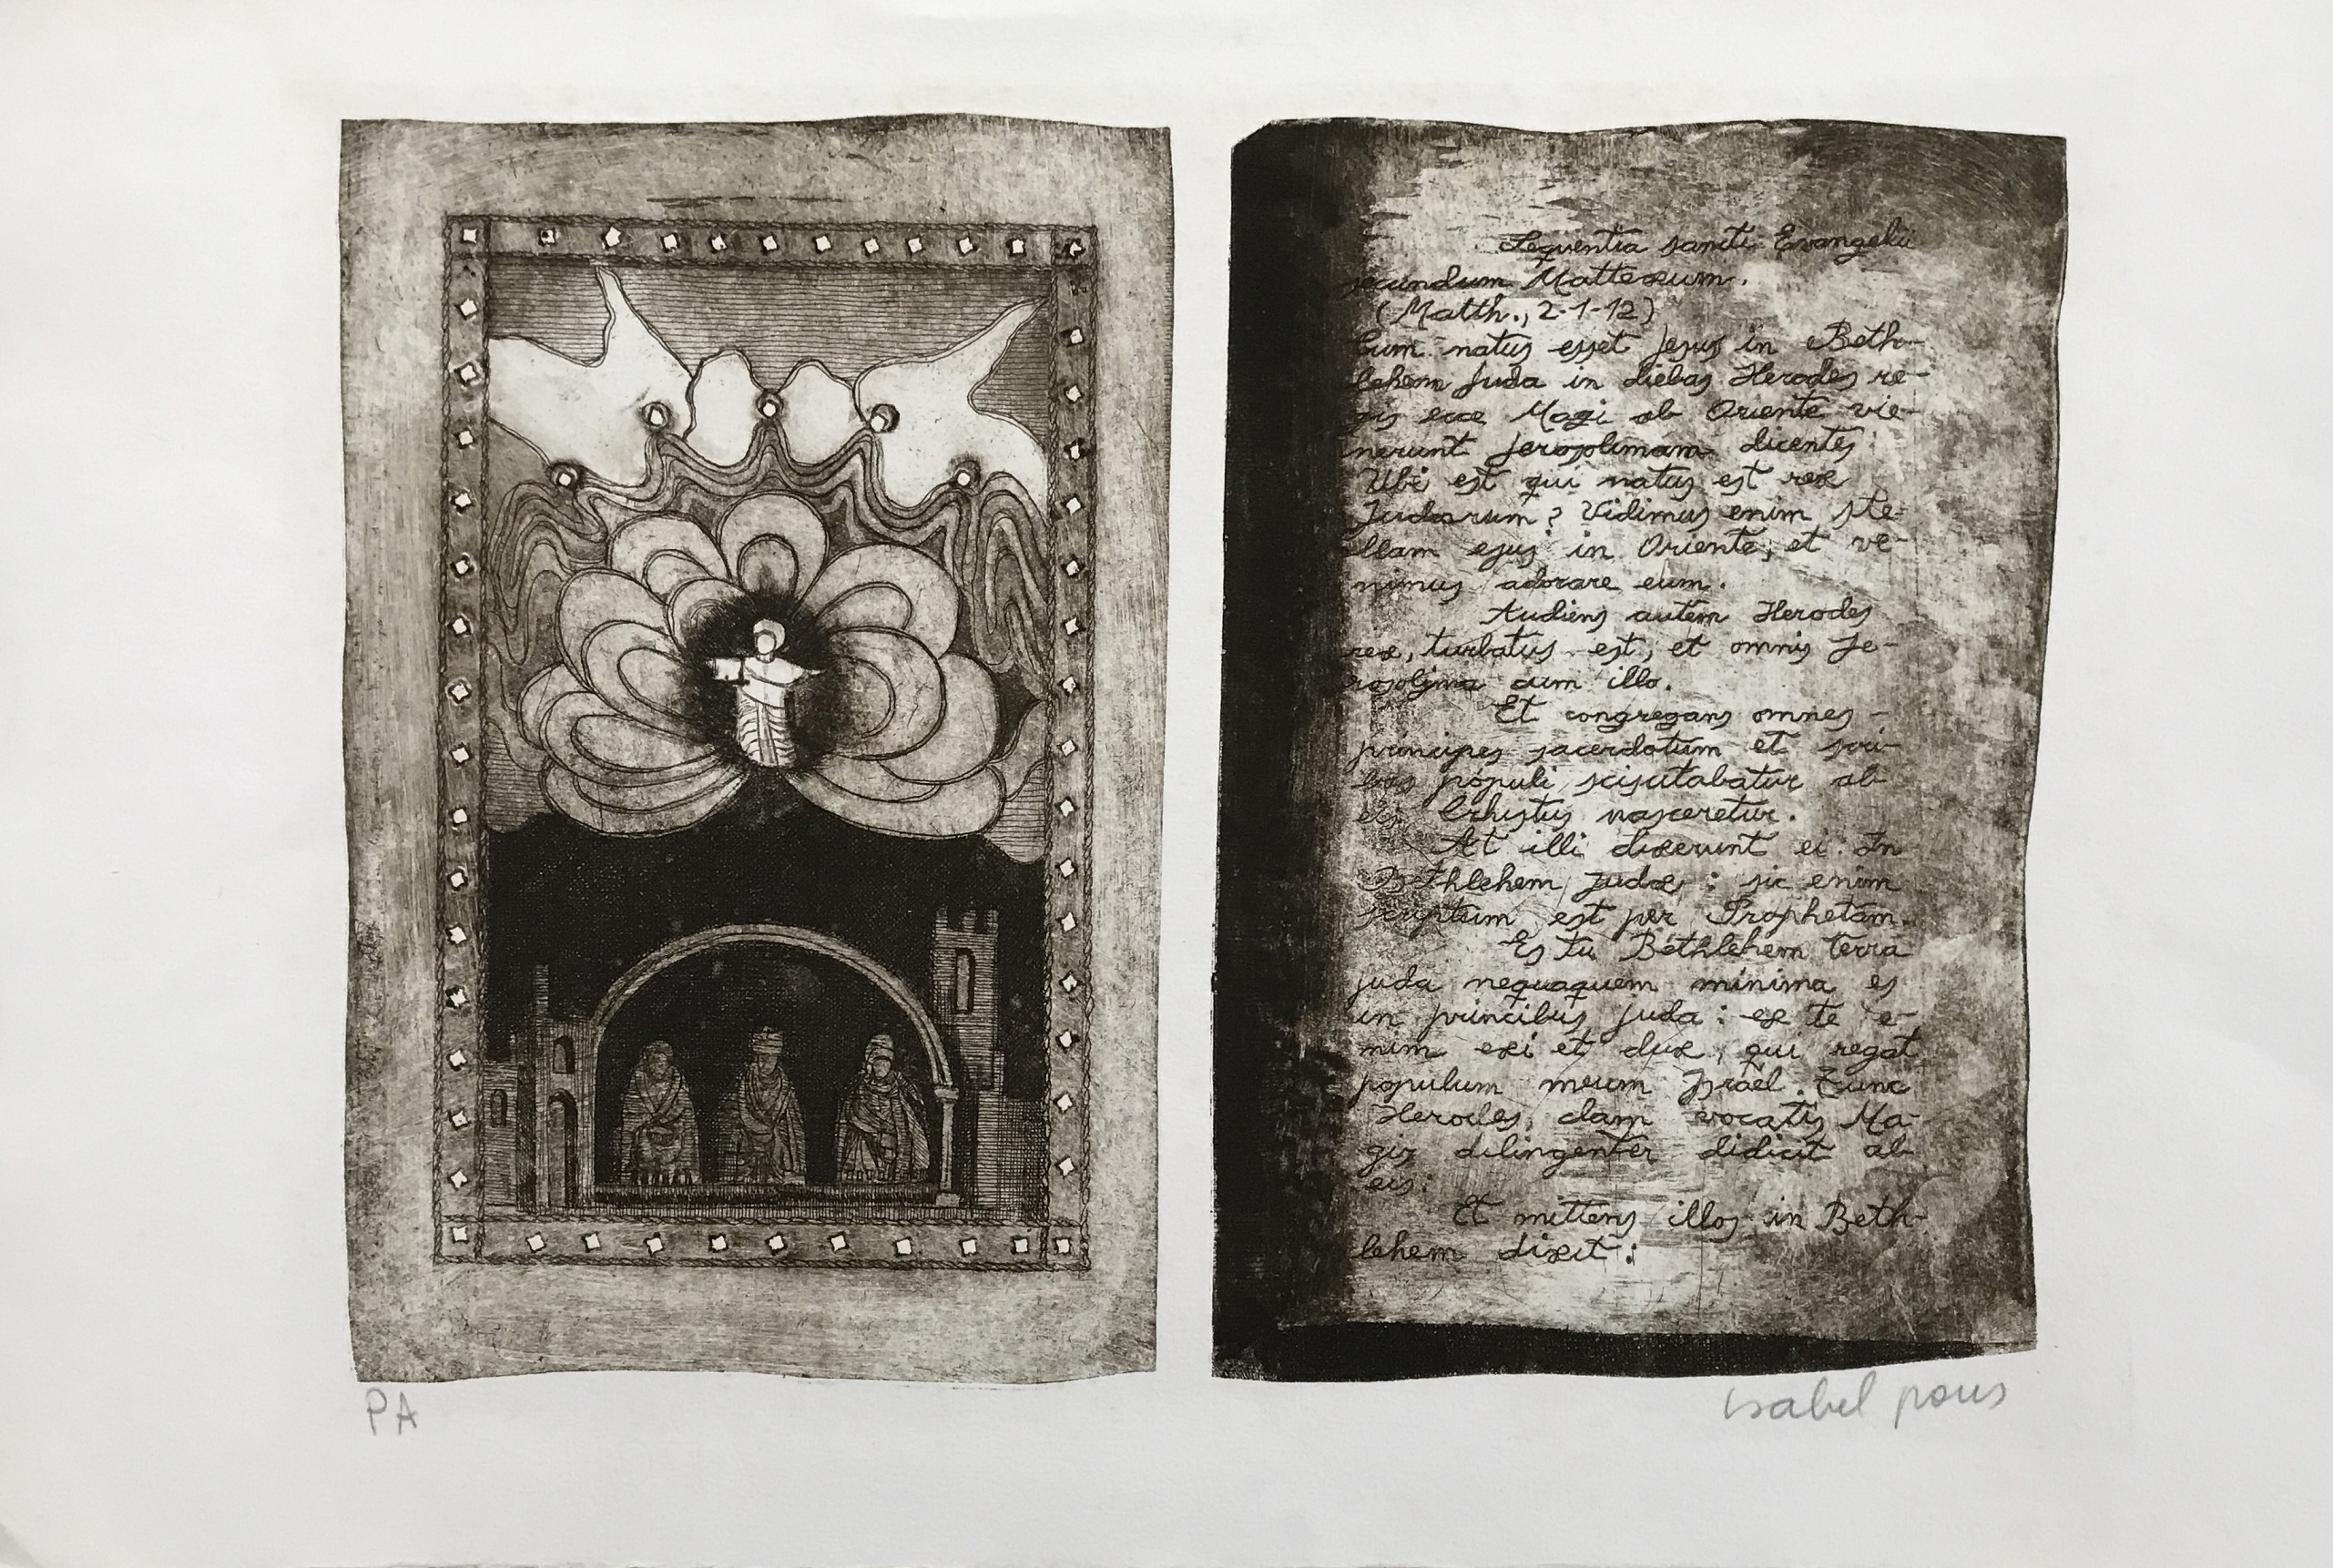 Sequentia sancti Evangelii
secundum Matteaeum.
(Matth., 2-1-12)
Cum natus esset Jesus in Beth-
lehem Juda in diebas Herodes re-
gis ecce Magi ab Oriente vie-
nerunt Jerosolimam dicentes:
Ubi est qui natus est rex
Judaerum? Vidimus enim ste-
llam ejus in Oriente, et ve-
nimus adorare eum.
Audiens autem Herodes
rex, turbatus est, et omnis Je-
rosolima cum illo.
Et congregans omnes
principes sacerdotum et scri-
bas populi, sciscitabatur ab
eis Christus nasceretur.
At illi dixerunt ei: In
Bethlehem Judae; sic enim
scriptum est per Prophetam.
Es tu Bethlehem terra
juda nequaquem minima es
in principibus juda: ex te e-
nim exi et dux, qui regat
populum meum Israel. Tunc
Herodes, clam vocatis Ma-
gis dilingenter didicit ab
eis:
Et mittens illos in Beth-
lehem dixit:
PA
isabel pons